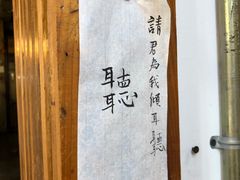 請君為我傾耳聽
聽